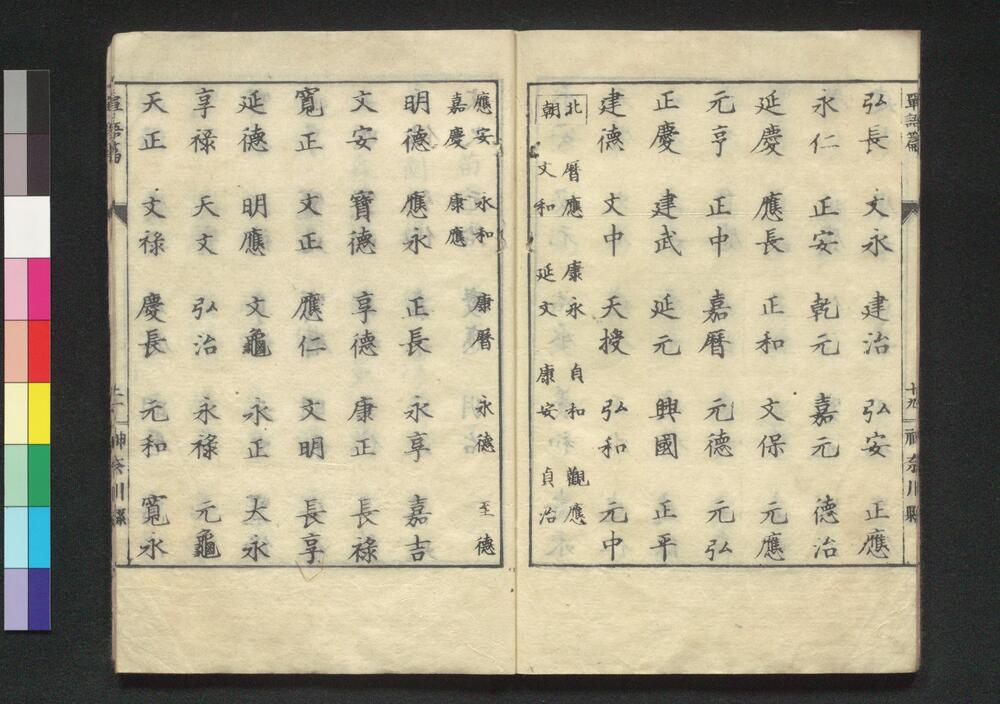 單語篇
十九
神奈川縣
弘長 文永 建治 弘安 正應
永仁 正安 乾元 嘉元 德治
延慶 應長 正和 文保 元應
元亨 正中 嘉曆 元德 元弘
正慶 建武 延元 興國 正平
建德 文中 天授 弘和 元中
北朝
曆應 康永 貞和 觀應
文和 延文 康安 貞治
應安 永和 康曆 永德 至德
嘉慶 康應
明德 應永 正長 永享 嘉吉
文安 寶德 享德 康正 長祿
寬正 文正 應仁 文明 長享
延德 明應 文龜 永正 大永
享祿 天文 弘治 永祿 元龜
天正 文祿 慶長 元和 寬永
單語篇
神奈川縣